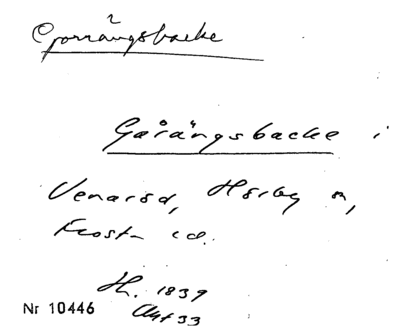 Gorrängsbacke
Gårängsbacke i
Venaröd, Hörby sn,
Frosta hd.
H. 1839
Nr 10446